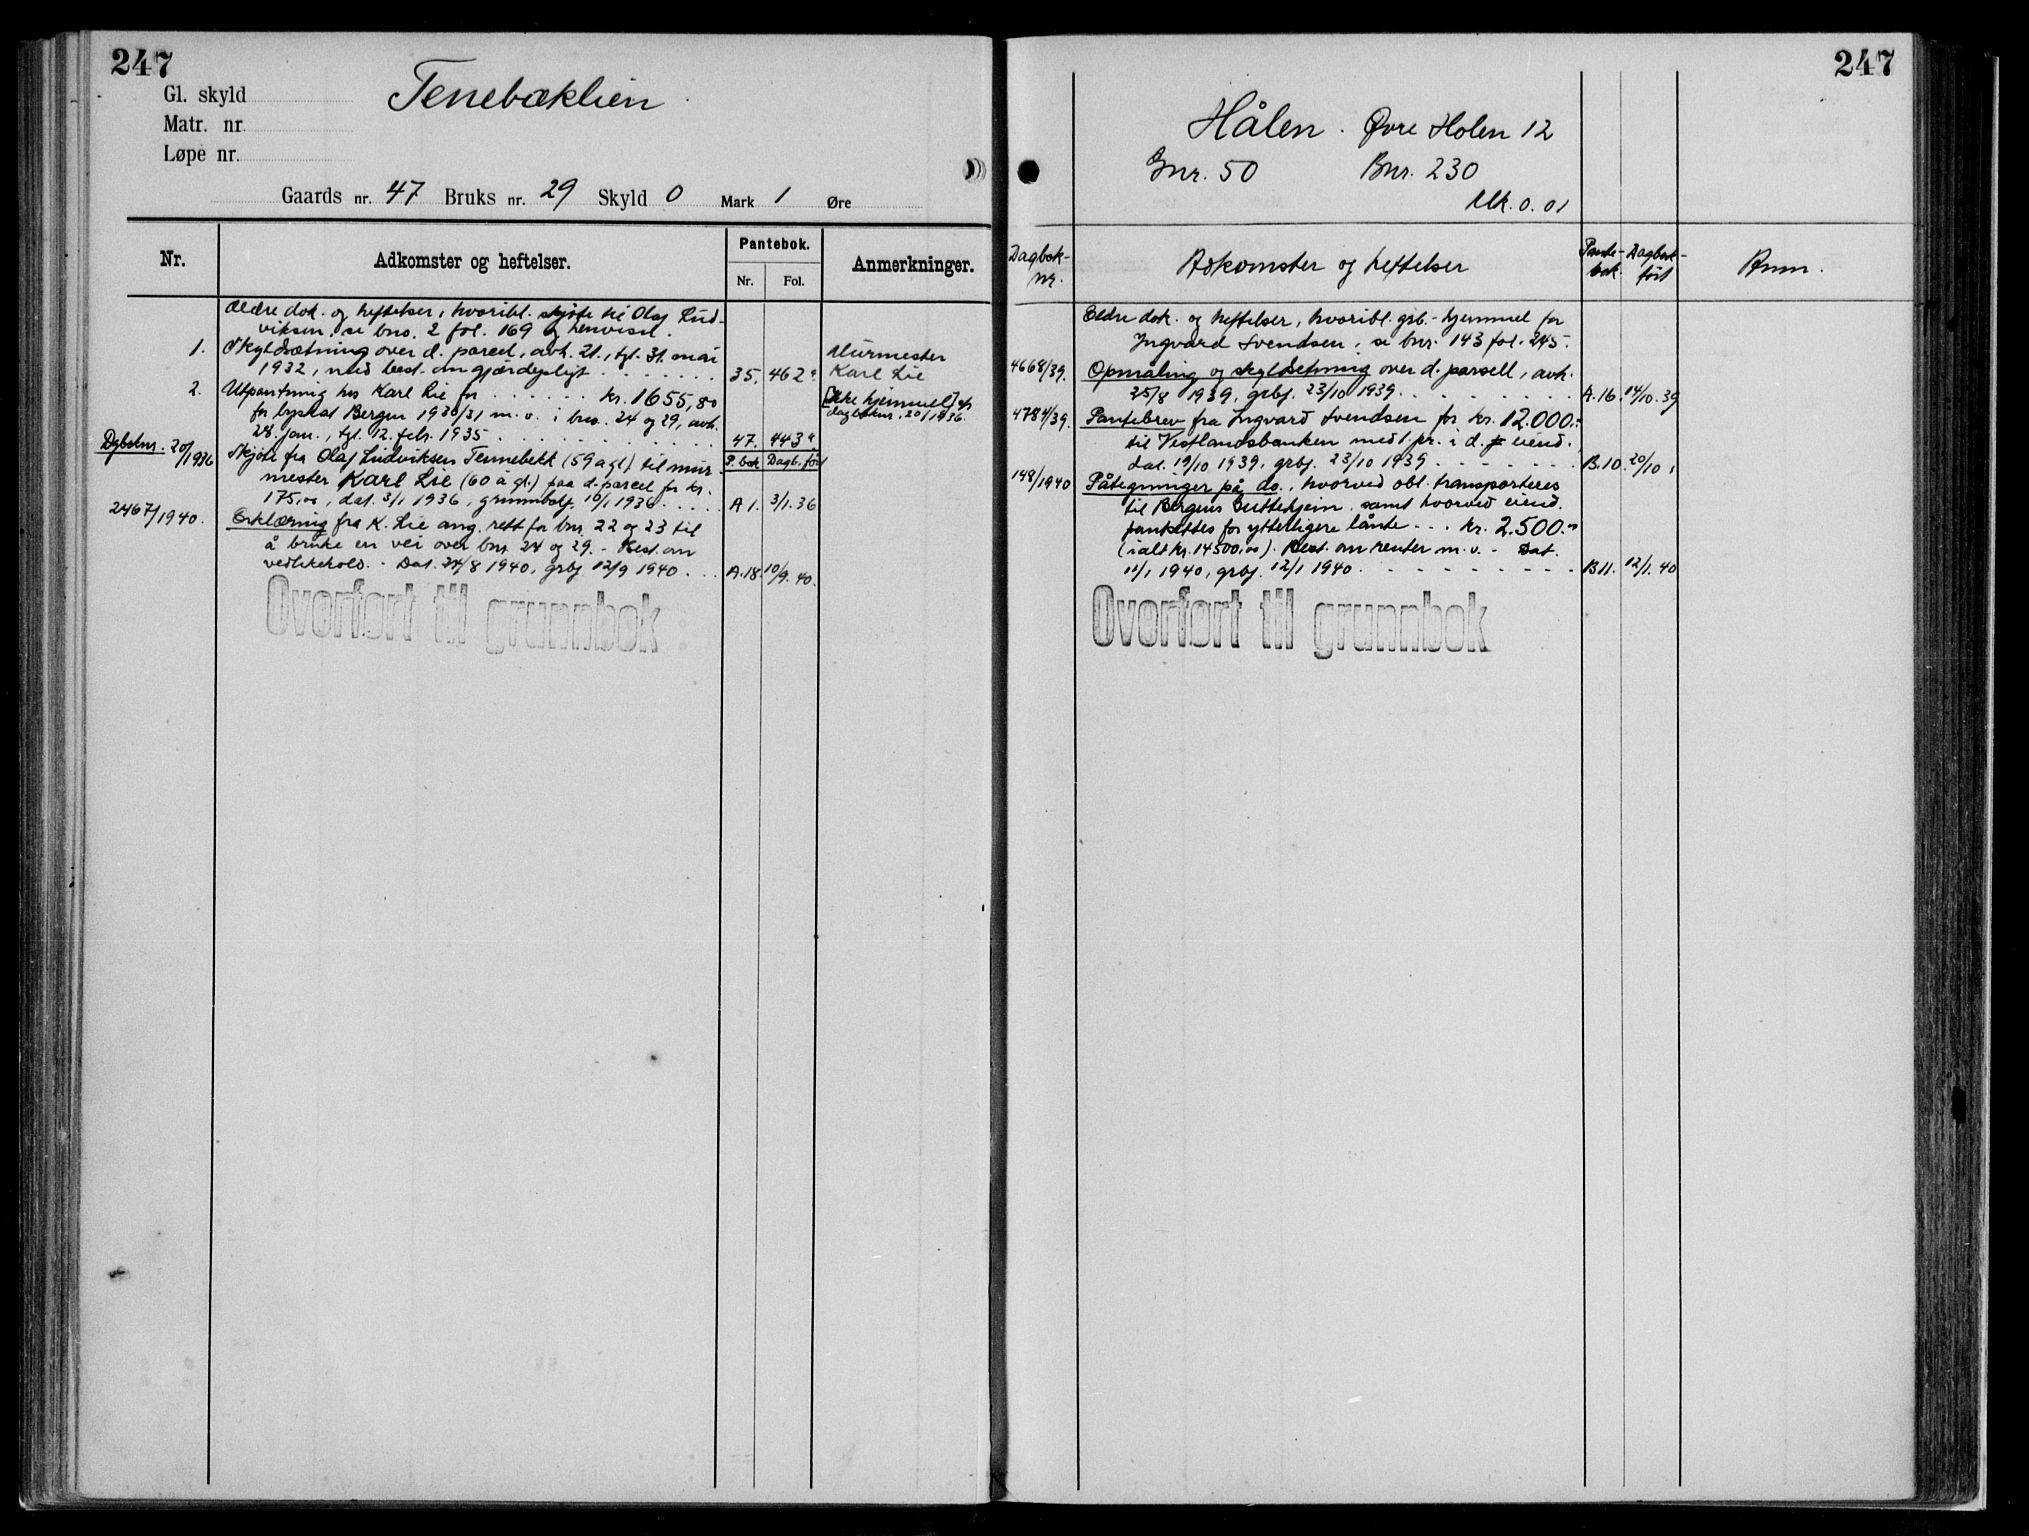 247
Gl. skyld
Matr. nr.
Løpe nr.
Tenebæklien
Gaards nr. 47 Bruks nr. 29 Skyld 0 Mark 1 Øre
Nr.
Adkomster og heftelser.
Pantebok.
Nr. Fol.
Anmerkninger.
Ældre dok. og heftelser, hvoribl. skjøte til Olaf Lud-
viksen, se bno. 2 fol. 169 og henvisn.
1. Skyldsætning over d. parcel, avh. 21., tgl. 31. mai
1932, med best. om gjærdepligt . . . . . . . 35. 462
Murmester
Karl Lie
2. Utpantning hos Karl Lie for . . . . . . kr. 1655,80
for byskat Bergen 1930/31 m. v. i bno. 24 og 29, avh.
28. jan., tgl. 12. febr. 1935 . . . . . . . . . . 47. 443
[Ikke hjemmel] cf.
dagboknr. 20/1936.
Dgboknr. 20/1936
Skjøte fra Olaf Ludviksen Tennebekk (59 a gl.) til mur-
mester Karl Lie (60 a gl.) paa d. parcel for kr.
175,00, dat. 3/1 1936, grunnbokf. 10/1 1936 . . . . .
P. bok Dagb. ført
A 1. 3/1. 36
2467/1940.
Erklæring fra K. Lie ang. rett for bnr. 22 og 23 til
å bruke en vei over bnr. 24 og 29. - Best. om
vedlikehold. - Dat. 24/8 1940, grbf. 12/9 1940 . . . A.18. 10/9. 40.
Overført til grunnbok
247
Hålen. Øvre Holen 12
Gnr. 50 Bnr. 230
Mk. 0.01
Dagbok-
nr.
Adkomster og heftelser
Pante-
bok.
Dagbok-
ført
Anm.
Eldre dok. og heftelser, hvoribl. grb.-hjemmel for
Ingvard Svendsen, se bnr. 143 fol. 245.
4668/39. Opmåling og skyldsetning over d. parsell, avh.
25/8 1939, grbf. 23/10 1939. . . . . . . . . A.16. 14/10. 39
4784/39. Pantebrev fra Ingvard Svendsen for kr. 12.000.-
til Vestlandsbanken med 1. pr. i d. eiend.
dat. 19/10 1939, grbf. 23/10 1939 . . . . . . . B.10. 20/10
148/1940 Påtegninger på do., hvorved obl. transporteres
til Bergens Guttehjem samt hvorved eiend.
pantsettes for ytterligere lånte . . . kr. 2.500.-
(ialt kr. 14500,00). Best. om renter m. v. - Dat.
11/1 1940, grbf. 12/1 1940 . . . . . . . . . . B 11. 12/1. 40
Overført til grunnbok